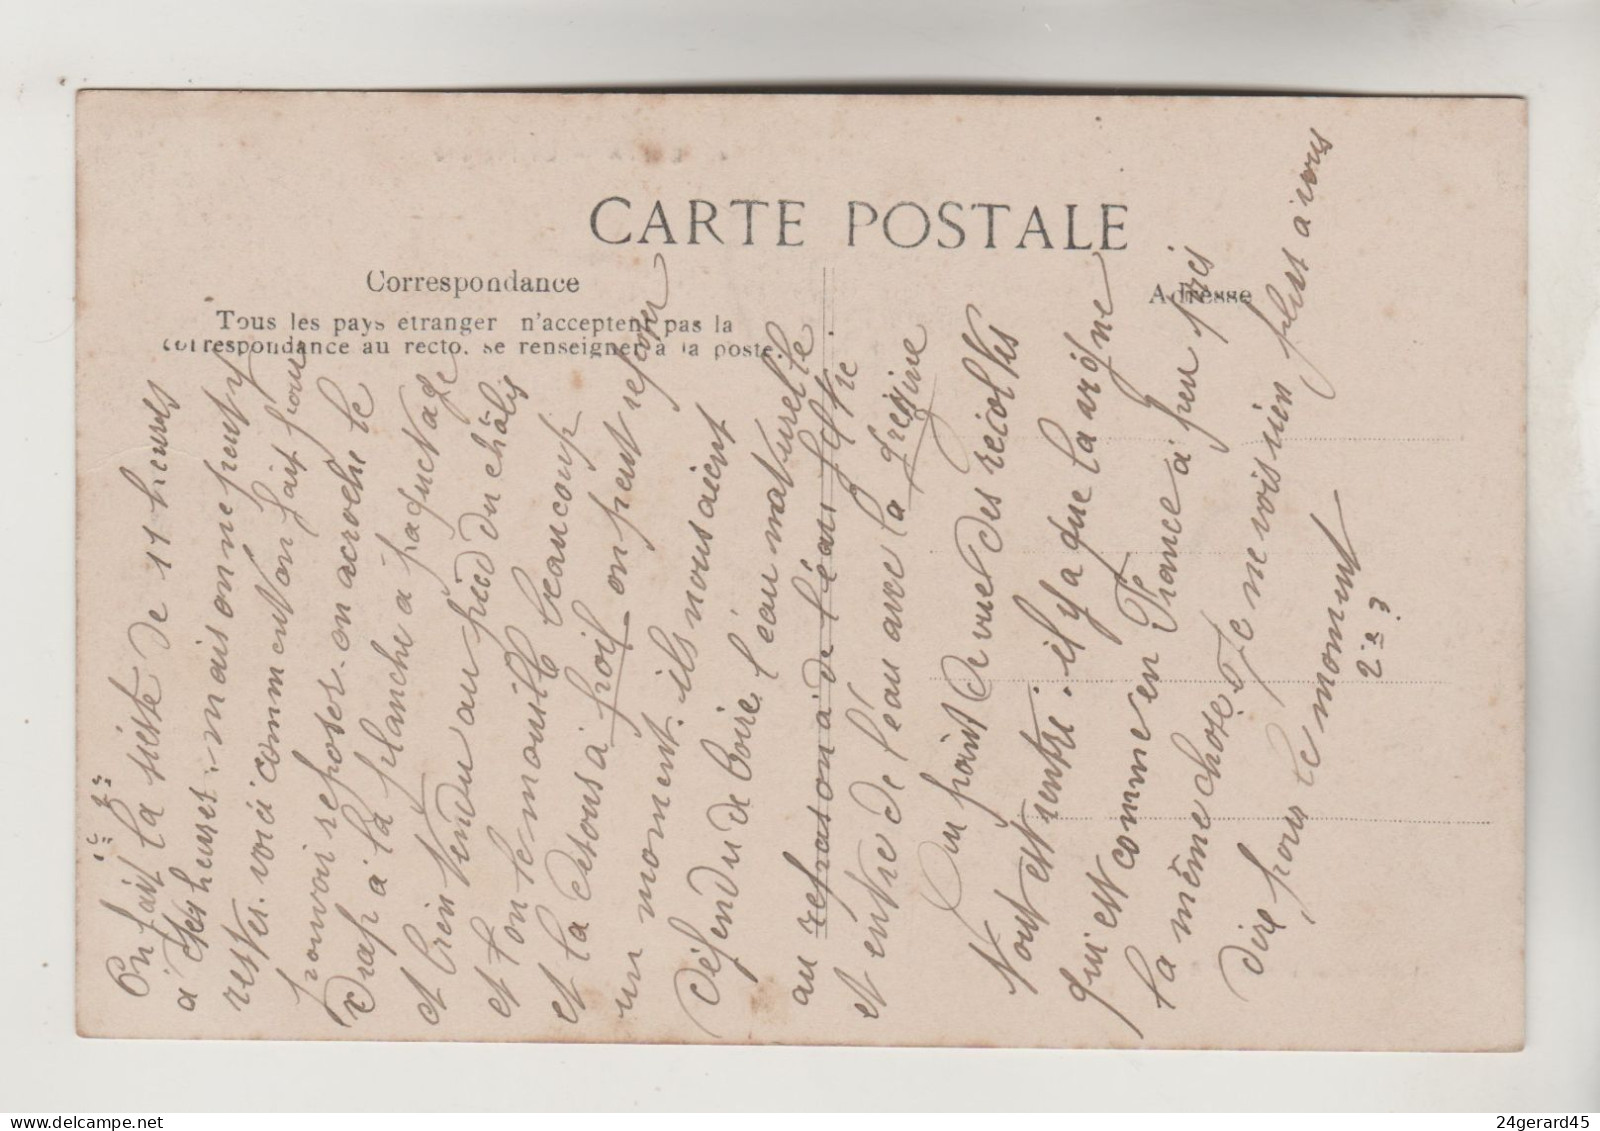 CARTE POSTALE
Correspondance
Adresse
Tous les pays etranger n'acceptent pas la
correspondance au recto. se renseigner à la poste.
On fait la sieste de 11 heures
à heures. mais on ne peut y
rester. voici comment on fait pour
pouvoir reposer. on acroche le
Drap à la planche a paquetage
et bien tendu au pied du châlis
et on le mouille beaucoup
et la desous à poil on peut reposer
un moment. ils nous aient
défendu de boire l'eau naturelle
au repas on a de l'eau filtrie.
et entre de l'eau avec la
Au point de vue des recoltes
tout est rentre. il y a que la vigne
qui est comme en France à peu près
la même chose. Je ne vois rien plus a vous
dire pour le moment
24gerard45
delcampe.net